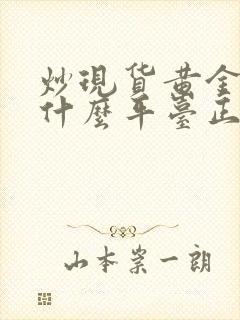 炒現貨黄金
什麽平臺正
山本崇一朗